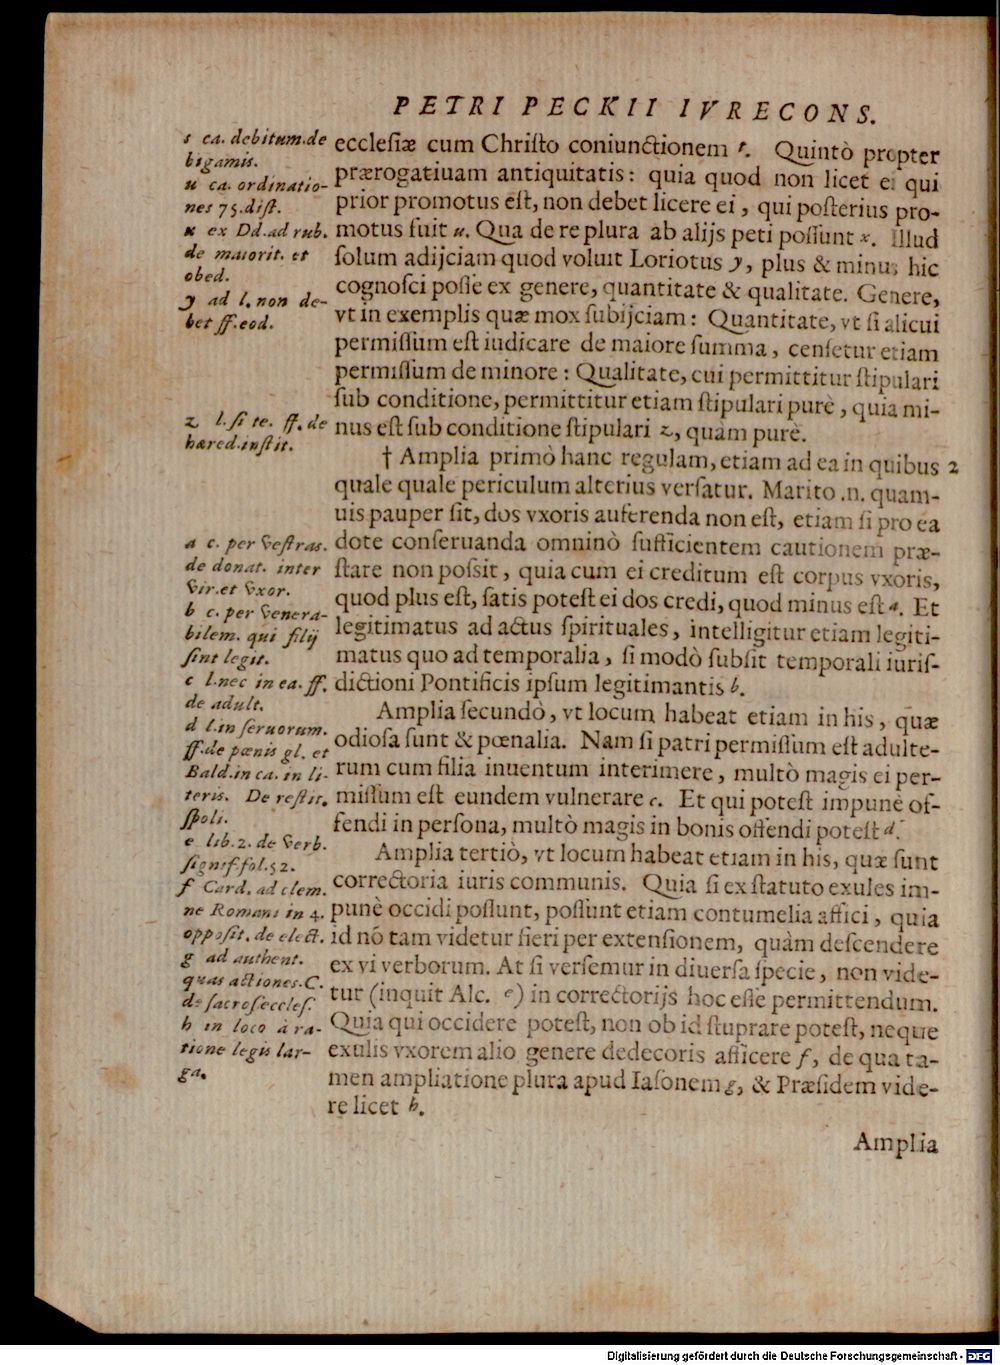 PETRI PECKII IVRECONS.
ecclesiæ cum Christo coniunctionem t. Quintò propter
prærogatiuam antiquitatis: quia quod non licet ei qui
prior promotus est, non debet licere ei, qui posterius pro-
motus fuit u. Qua de re plura ab alijs peti possunt x. Illud
solum adijciam quod voluit Loriotus y, plus & minus hic
cognosci posse ex genere, quantitate & qualitate. Genere,
vt in exemplis quæ mox subijciam: Quantitate, vt si alicui
permissum est iudicare de maiore summa, censetur etiam
permissum de minore: Qualitate, cui permittitur stipulari
sub conditione, permittitur etiam stipulari purè, quia mi-
nus est sub conditione stipulari z, quàm purè.
† Amplia primò hanc regulam, etiam ad ea in quibus 2
quale quale periculum alterius versatur. Marito .n. quam-
uis pauper sit, dos vxoris auferenda non est, etiam si pro ea
dote conseruanda omninò sufficientem cautionem præ-
stare non possit, quia cum ei creditum est corpus vxoris,
quod plus est, satis potest ei dos credi, quod minus est a. Et
legitimatus ad actus spirituales, intelligitur etiam legiti-
matus quo ad temporalia, si modò subsit temporali iuris-
dictioni Pontificis ipsum legitimantis b.
Amplia secundò, vt locum habeat etiam in his, quæ
odiosa sunt & pœnalia. Nam si patri permissum est adulte-
rum cum filia inuentum interimere, multò magis ei per-
missum est eundem vulnerare c. Et qui potest impunè of-
fendi in persona, multò magis in bonis offendi potest d.
Amplia tertiò, vt locum habeat etiam in his, quæ sunt
correctoria iuris communis. Quia si ex statuto exules im-
punè occidi possunt, possunt etiam contumelia affici, quia
id nō tam videtur fieri per extensionem, quàm descendere
ex vi verborum. At si versemur in diuersa specie, non vide-
tur (inquit Alc. e) in correctorijs hoc esse permittendum.
Quia qui occidere potest, non ob id stuprare potest, neque
exulis vxorem alio genere dedecoris afficere f, de qua ta-
men ampliatione plura apud Iasonem g, & Præsidem vide-
re licet h.
Amplia
s ca. debitum. de
bigamis.
u ca. ordinatio-
nes 75. dist.
x ex Dd. ad rub.
de maiorit. et
obed.
y ad l. non de-
bet ff. eod.
z l. si te. ff. de
hæred. instit.
a c. per vestras.
de donat. inter
vir. et vxor.
b c. per venera-
bilem. qui filij
sint legit.
c l. nec in ea. ff.
de adult.
d l. in seruorum.
ff. de pœnis gl. et
Bald. in ca. in li-
teris. De restit.
spoli.
e lib. 2. de verb.
signif. fol. 52.
f Card. ad clem.
ne Romani in 4.
opposit. de elect.
g ad authent.
quas actiones. C.
de sacros. eccles.
h in loco à ra-
tione legis lar-
ga.
Digitalisierung gefördert durch die Deutsche Forschungsgemeinschaft - DFG